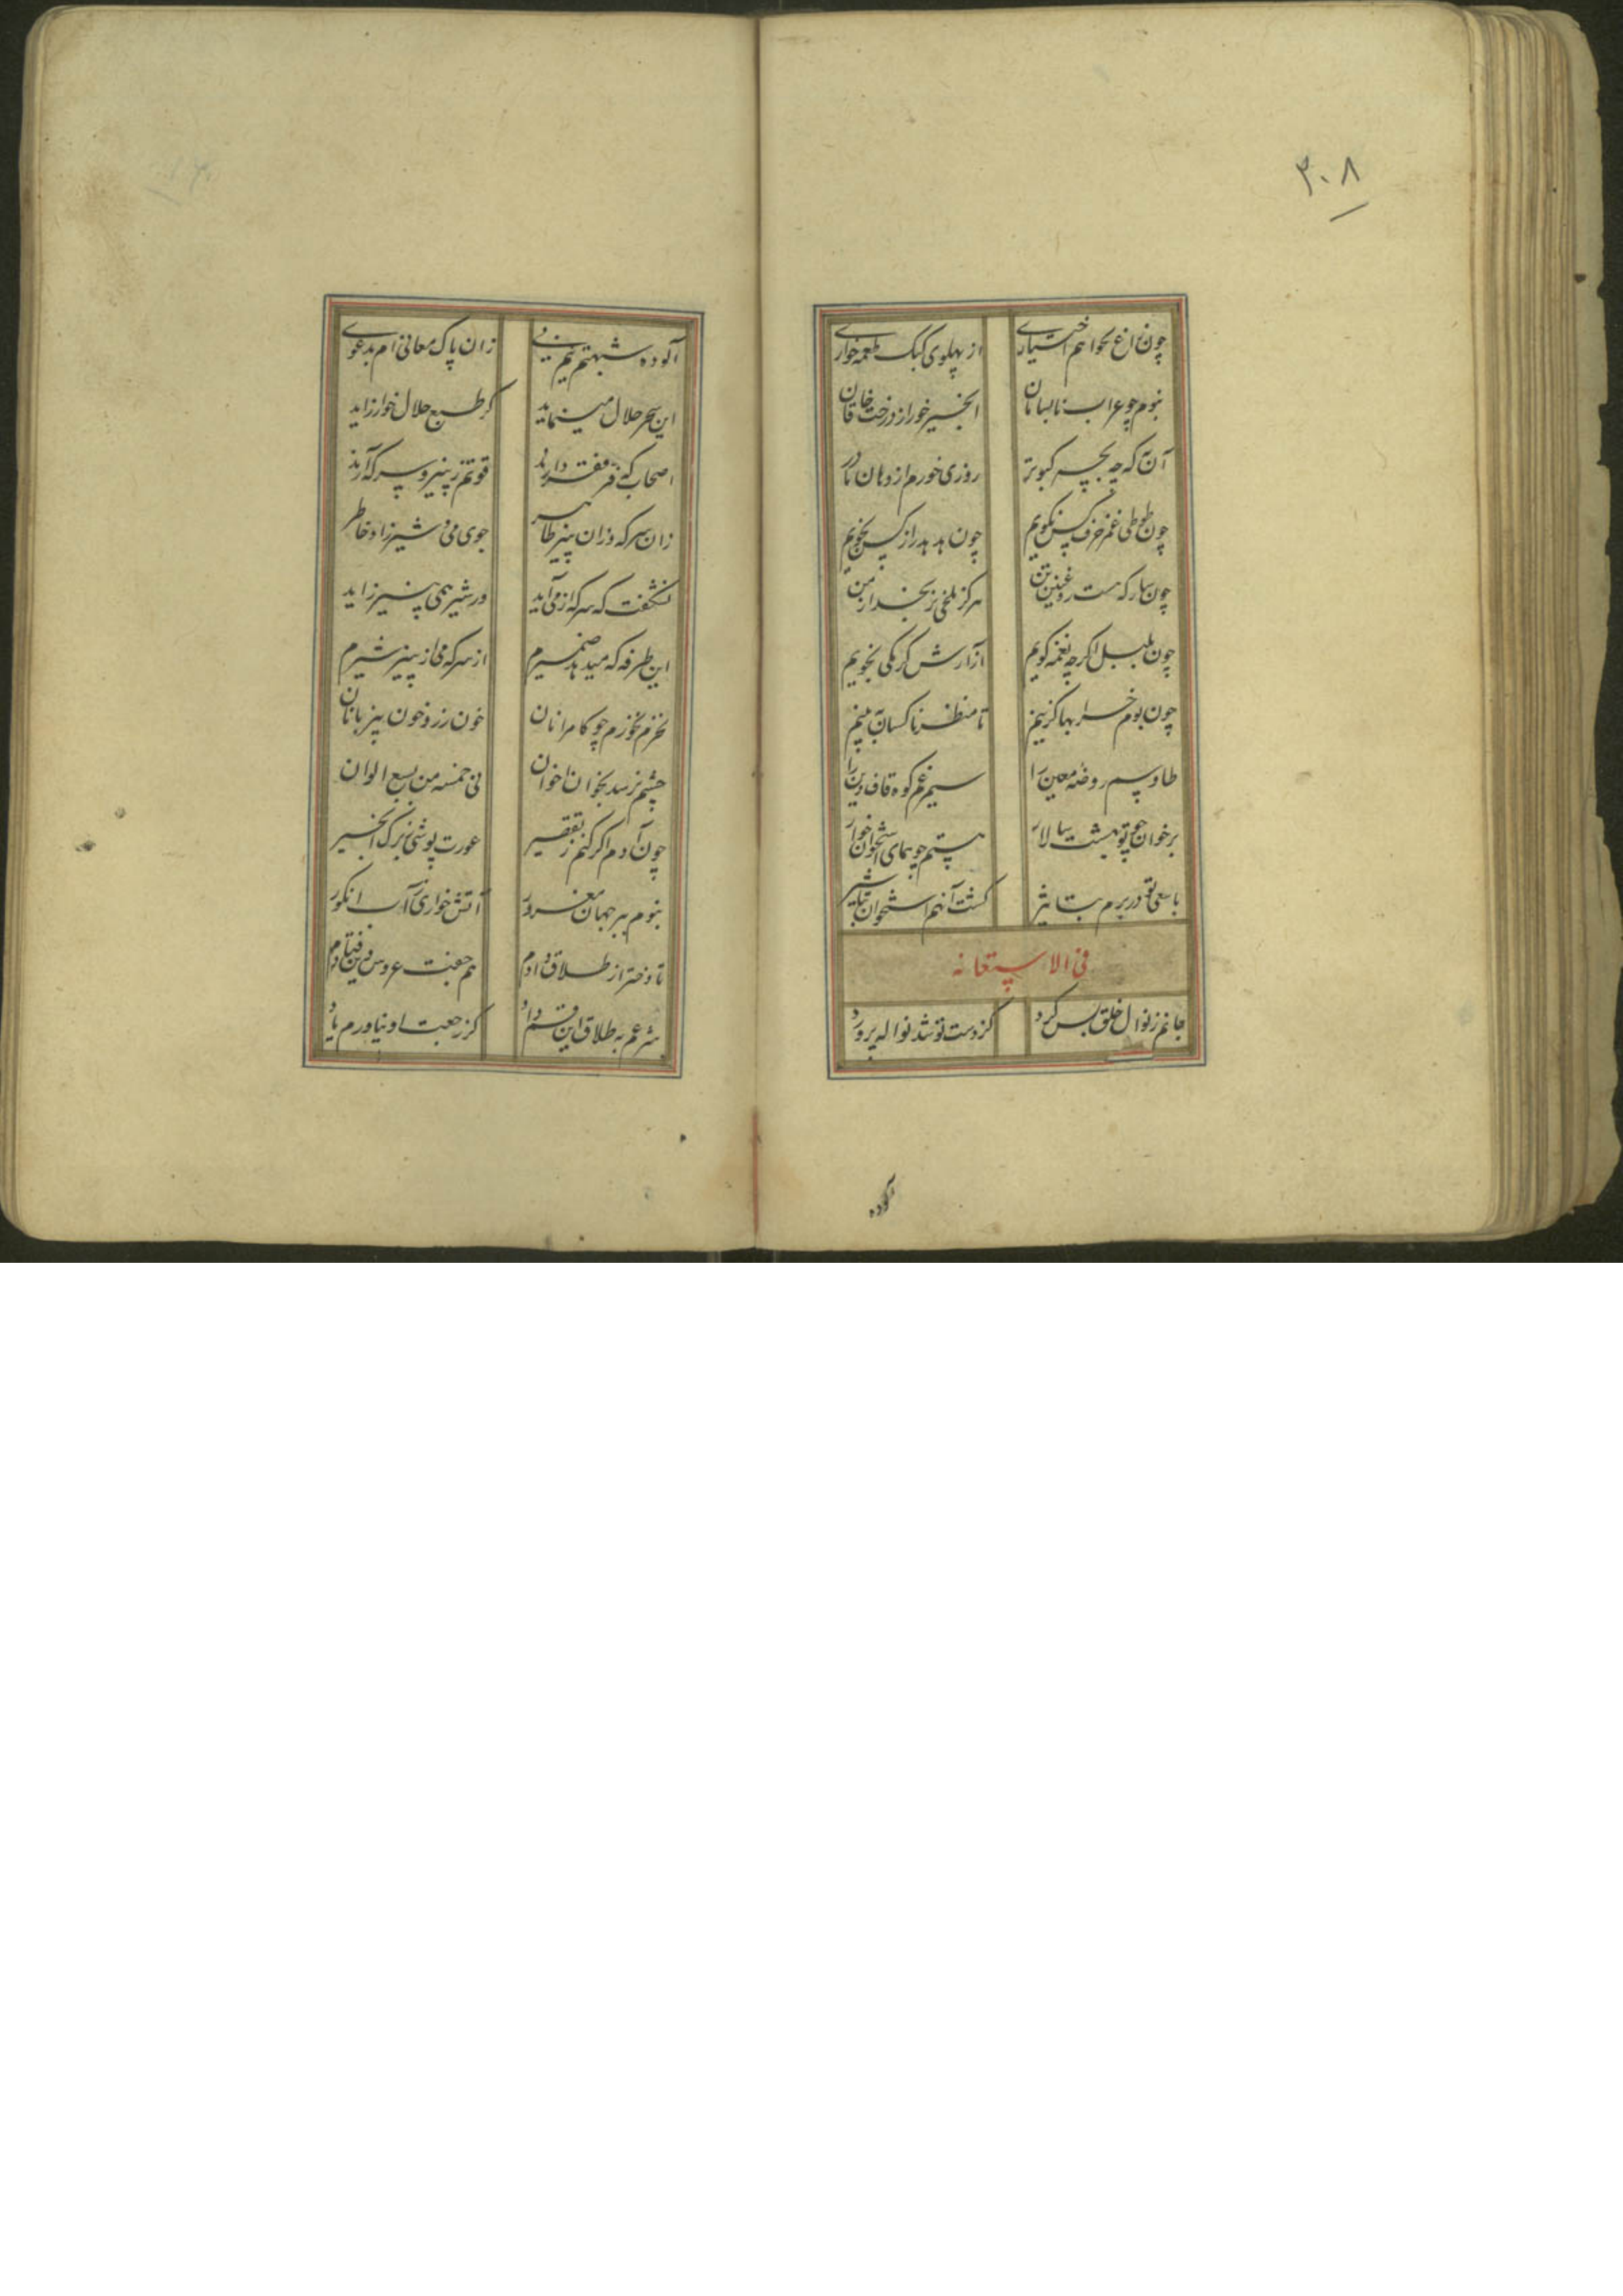 ۳۰۸
چون زاغ نخواهم اختیاری از پهلوی کبک طعمه‌خواری
نبوم چو غراب نابسامان انجیر خور از درخت خاقان
آن که چه بچه کبوتر روزی خورم از دهان مادر
چون طوطی غمز خرف کس نگویم چون هدهد راز کس نجویم
چون سار که هست روغنین تن هرگز ملخی نرنجد از من
چون بلبل اگر چه نغمه گویم آزارش کرمکی نجویم
چون بوم خرابها گزینم تا منظر ناکسان نبینم
طاوسم روضه معین را سیمرغم کوه قاف دین را
بر خوان چو تو بهشت سالار هستم چو همای استخوان خوار
با سعی تو در برم بتاثیر گشت آنهم استخوان تباشیر
فی الاستعانه
جانم ز نوال خلق بس کرد کز دست تو شد نواله پرورد
آلوده
آلوده شبهتم نیم نی زان پاک معانی ام بدعوی
این سحر حلال مینماید کز طبع حلال خوار زاید
اصحاب که فر فقر دارند قوتم ز پنیر و سرکه آرند
زان سرکه و زان پنیر طاهر جوی می و شیر زاد خاطر
نشگفت که سرکه از می آید ور شیر همی پنیر زاید
این طرفه که میدهد ضمیرم از سرکه می از پنیر شیرم
نخرم نخورم چو کامرانان خون رز و خون پیر بانان
چشم نرسد بخوان اخوان نی خمسه من بسبع الوان
چون آدم اگر کنم ز تقصیر عورت پوشی ز برگ انجیر
نبوم ببر جهان مغرور آتش خواری ز آب انگور
تا دختر رز طلاق دادم هم جفت عروس دین فتادم
شرعم به طلاق این قسم داد کز رجعت او نیاورم یاد